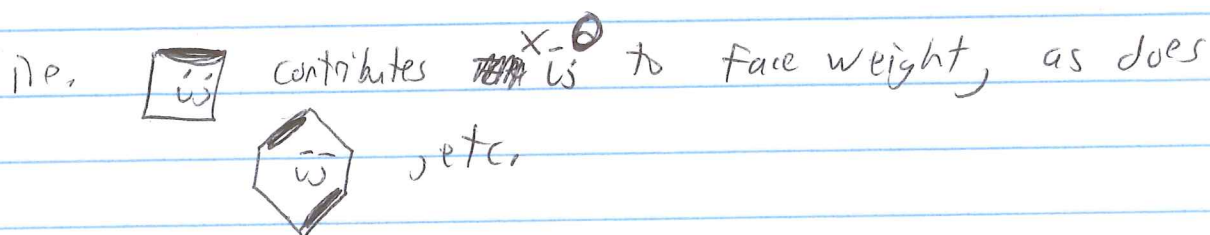 i.e. contributes X_ij to face weight, as does
, etc.